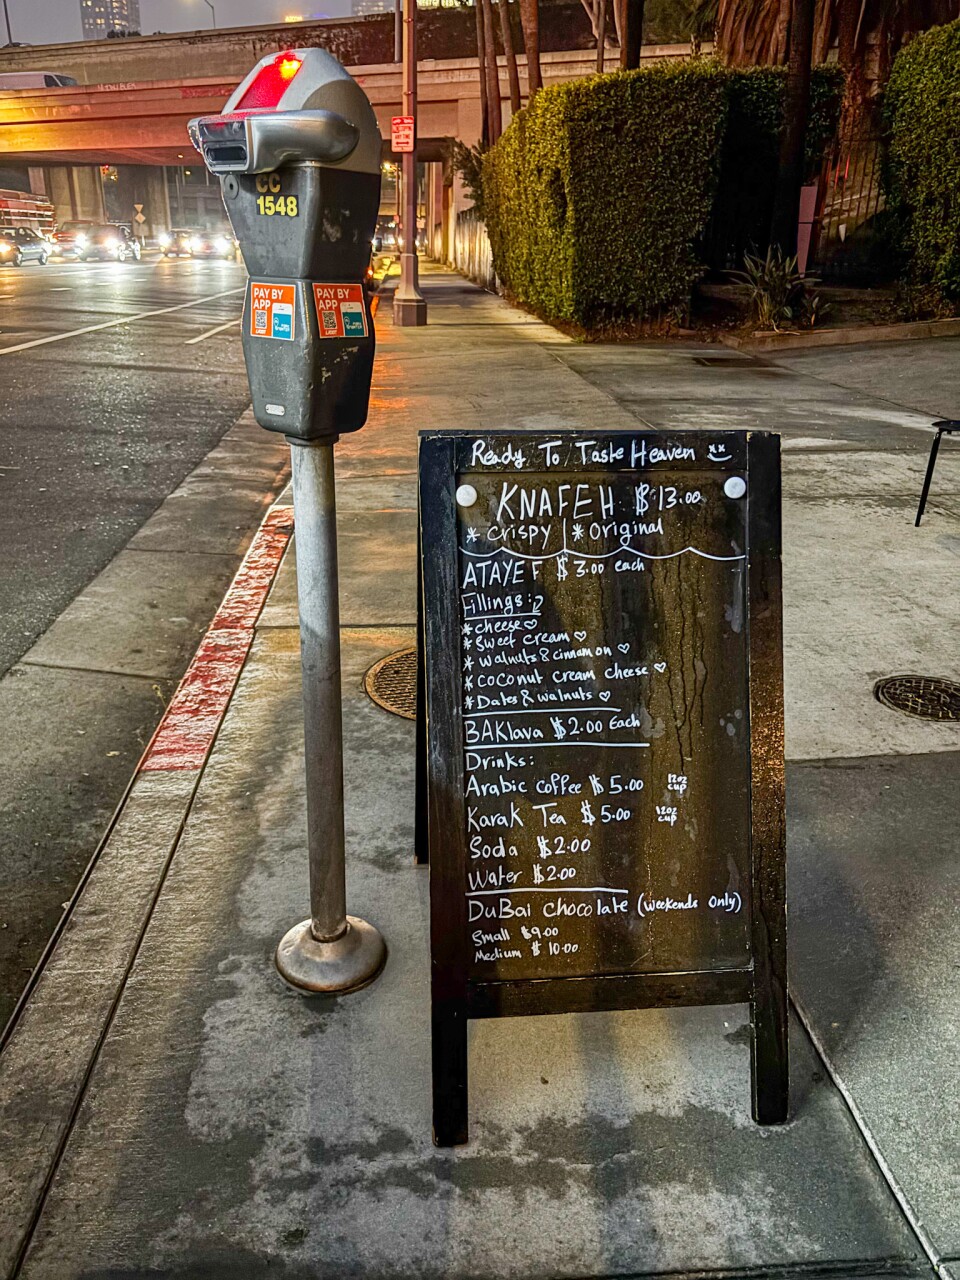 CC
1548
PAY BY
APP
PAY BY
APP
Ready To Taste Heaven
KNAFEH $13.00
* Crispy | * Original
ATAYEF $3.00 each
Fillings:
* cheese♡
* Sweet cream♡
* walnuts & cinnamon ♡
* coconut cream cheese ♡
* Dates & walnuts ♡
BAKlava $2.00 Each
Drinks:
Arabic coffee $5.00 12oz cup
Karak Tea $5.00 12oz cup
Soda $2.00
Water $2.00
DuBai chocolate (weekends only)
Small $9.00
Medium $10.00